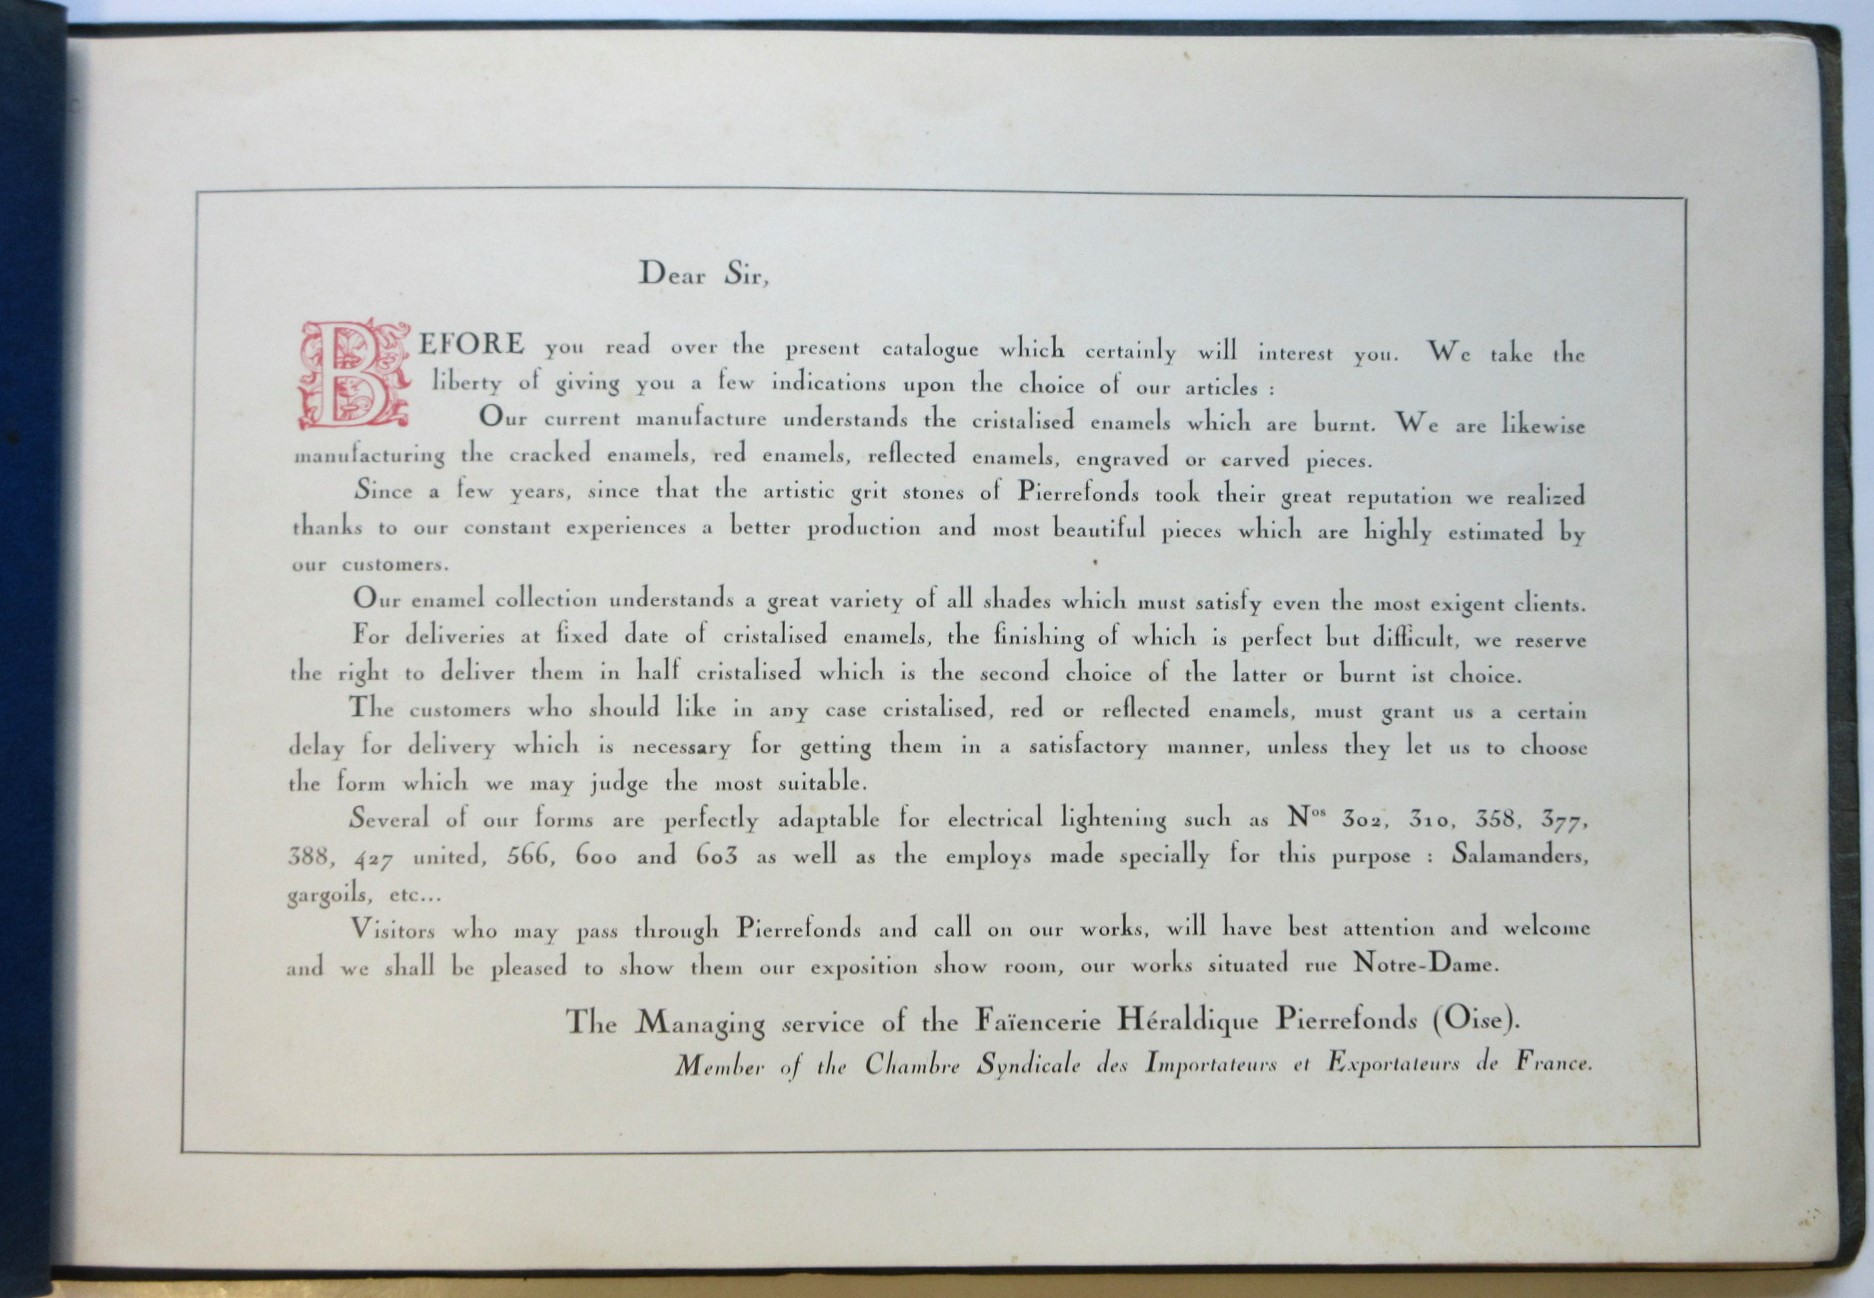 Dear Sir,
BEFORE you read over the present catalogue which certainly will interest you. We take the
liberty of giving you a few indications upon the choice of our articles :
Our current manufacture understands the cristalised enamels which are burnt. We are likewise
manufacturing the cracked enamels, red enamels, reflected enamels, engraved or carved pieces.
Since a few years, since that the artistic grit stones of Pierrefonds took their great reputation we realized
thanks to our constant experiences a better production and most beautiful pieces which are highly estimated by
our customers.
Our enamel collection understands a great variety of all shades which must satisfy even the most exigent clients.
For deliveries at fixed date of cristalised enamels, the finishing of which is perfect but difficult, we reserve
the right to deliver them in half cristalised which is the second choice of the latter or burnt ist choice.
The customers who should like in any case cristalised, red or reflected enamels, must grant us a certain
delay for delivery which is necessary for getting them in a satisfactory manner, unless they let us to choose
the form which we may judge the most suitable.
Several of our forms are perfectly adaptable for electrical lightening such as Nos 302, 310, 358, 377,
388, 427 united, 566, 600 and 603 as well as the employs made specially for this purpose : Salamanders,
gargoils, etc...
Visitors who may pass through Pierrefonds and call on our works, will have best attention and welcome
and we shall be pleased to show them our exposition show room, our works situated rue Notre-Dame.
The Managing service of the Faïencerie Héraldique Pierrefonds (Oise).
Member of the Chambre Syndicale des Importateurs et Exportateurs de France.